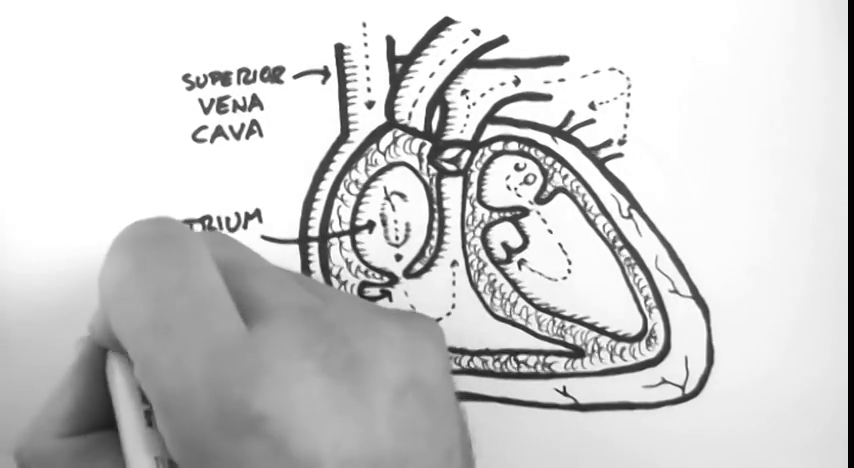 SUPERIOR
VENA
CAVA
TRIUM